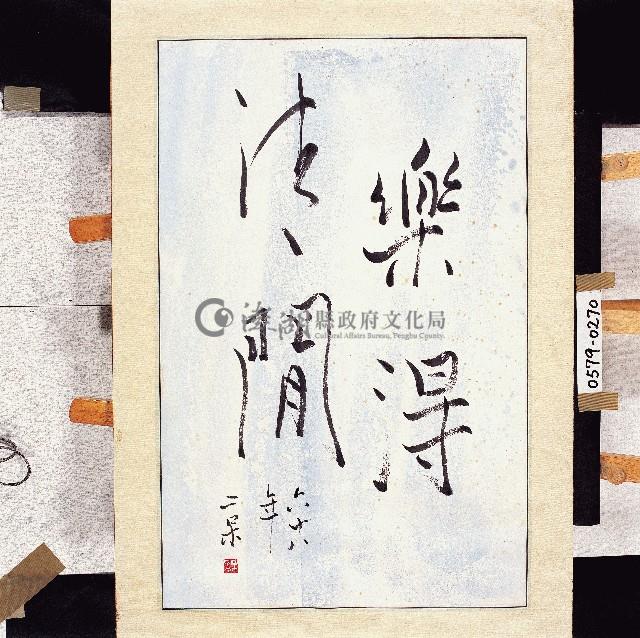 樂得
清閒
六十八
年
二呆
澎湖縣政府文化局
Cultural Affairs Bureau, Penghu County.
0579-0270